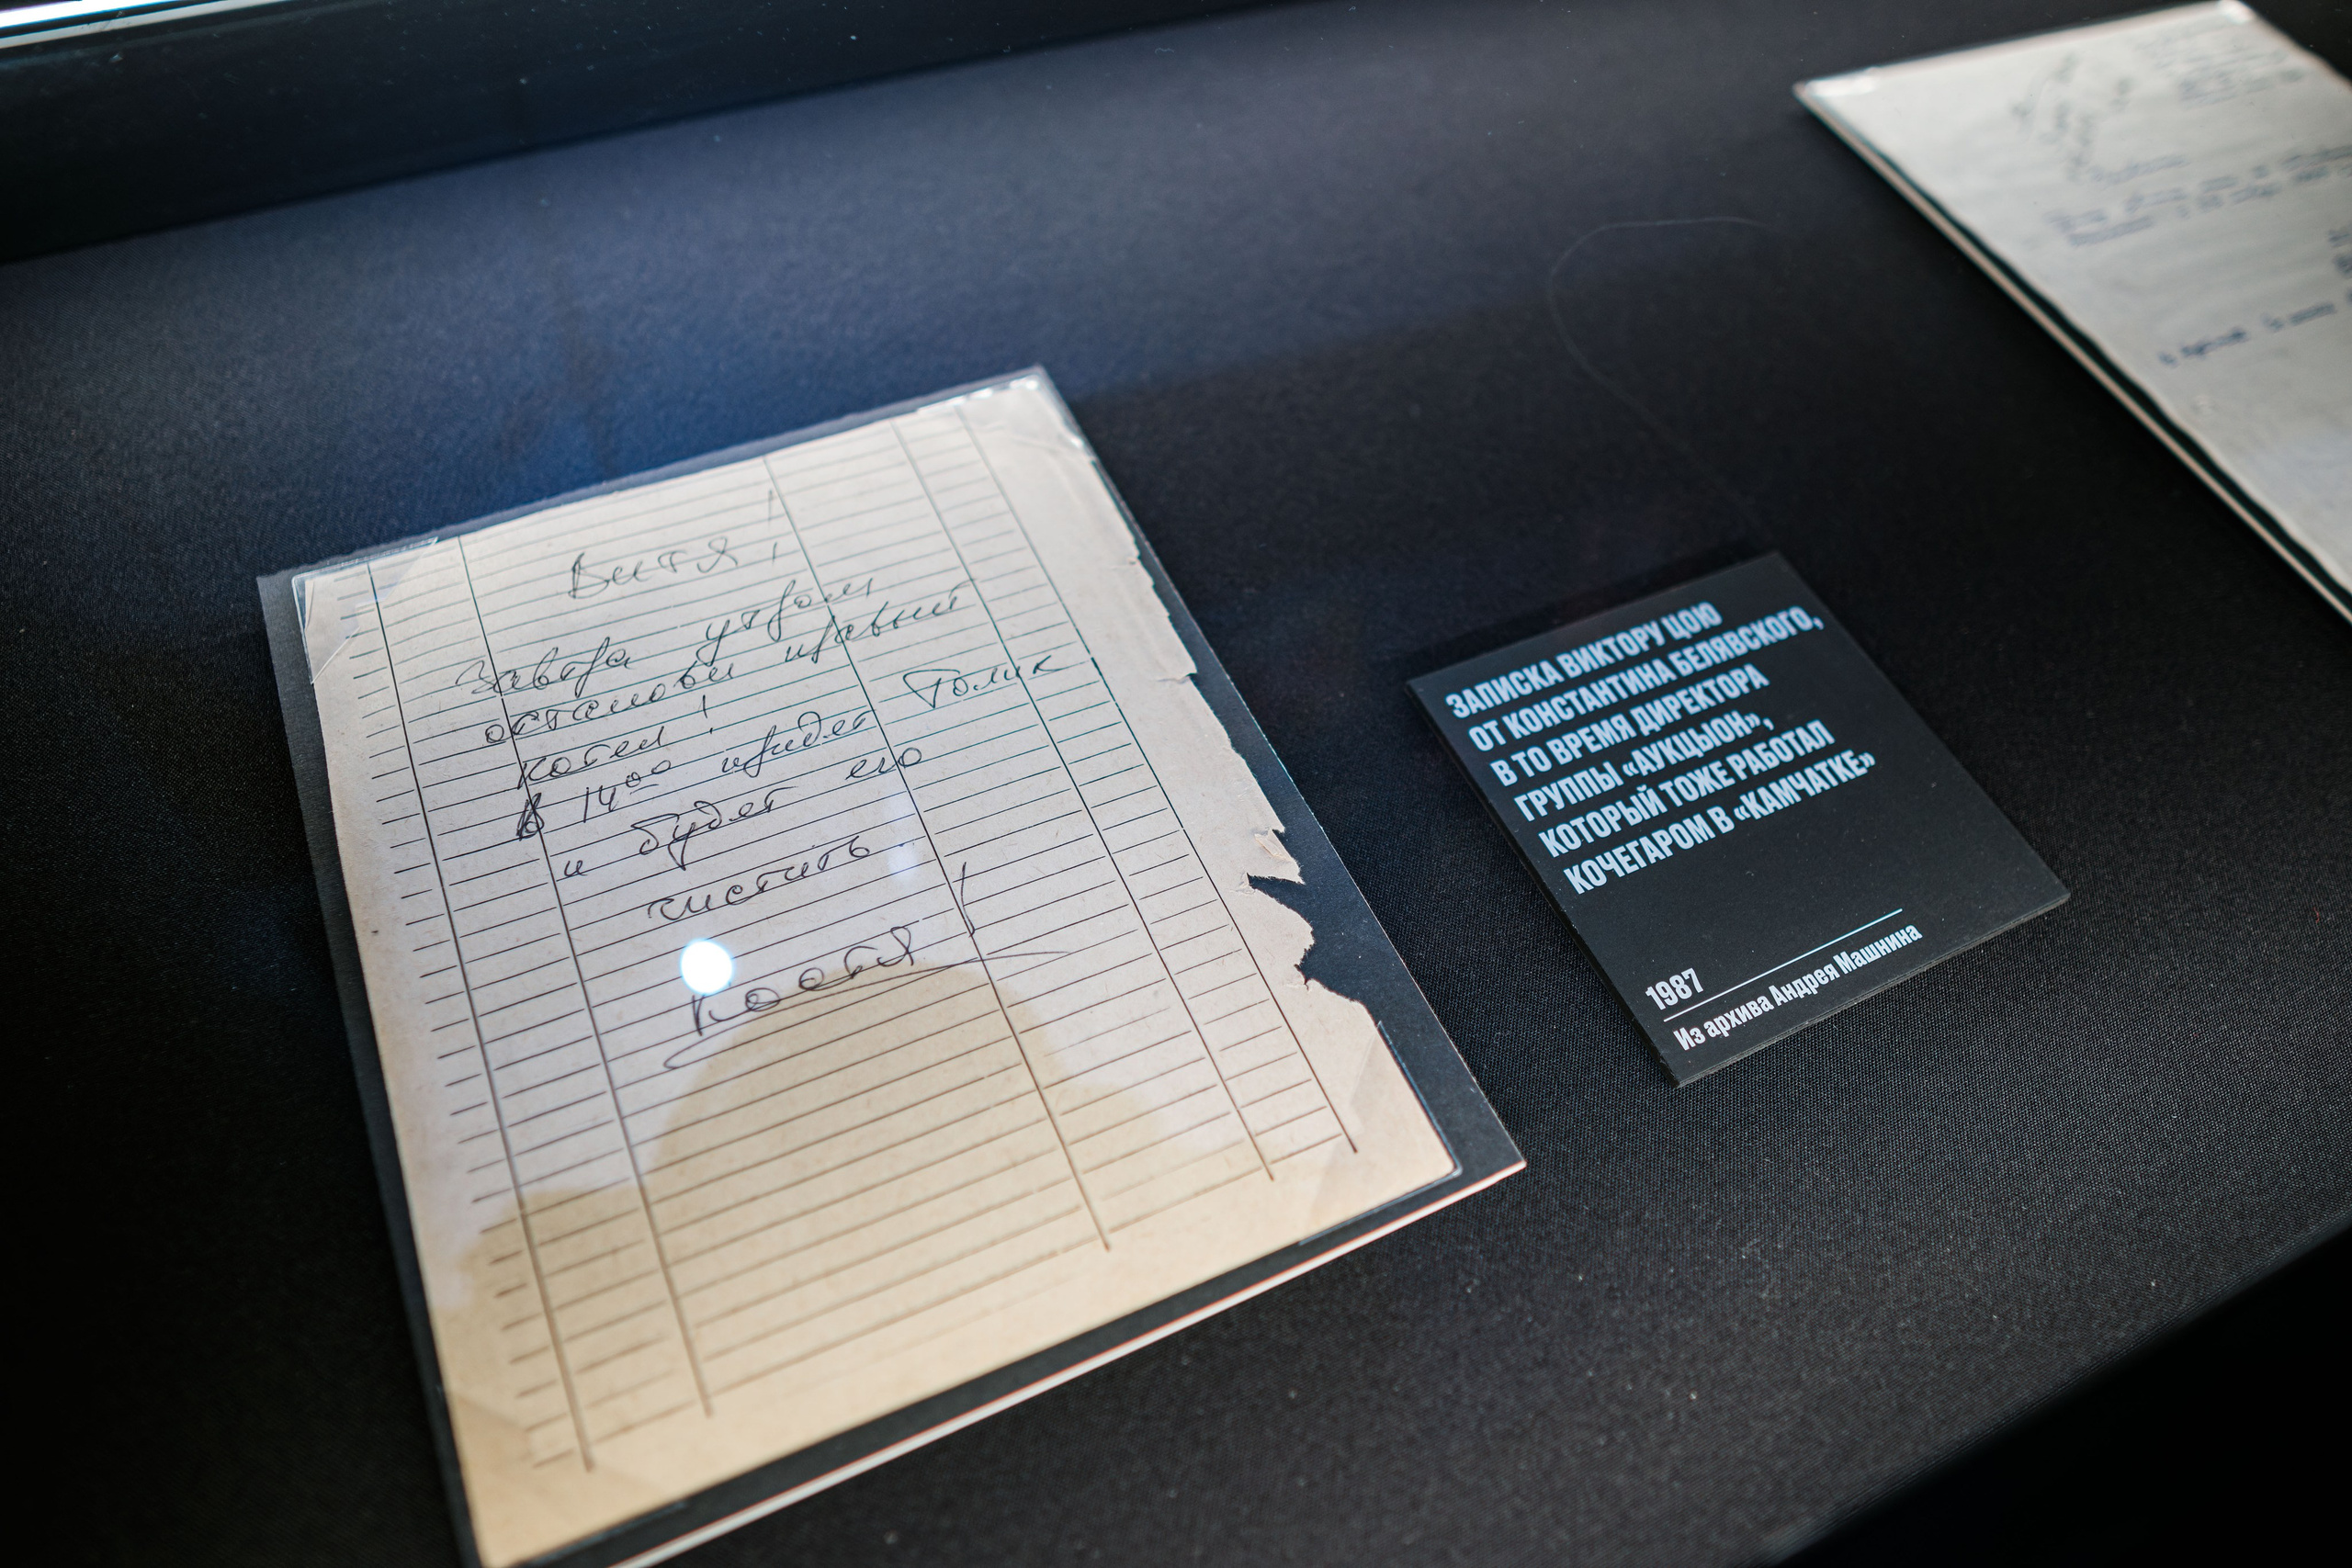 Витя!
Завтра утром
останови правый
котел!
В 14⁰⁰ придет Толик
и будет его
чистить.
Костя!
ЗАПИСКА ВИКТОРУ ЦОЮ
ОТ КОНСТАНТИНА БЕЛЯВСКОГО,
В ТО ВРЕМЯ ДИРЕКТОРА
ГРУППЫ «АУКЦЫОН»,
КОТОРЫЙ ТОЖЕ РАБОТАЛ
КОЧЕГАРОМ В «КАМЧАТКЕ»
1987
Из архива Андрея Машнина